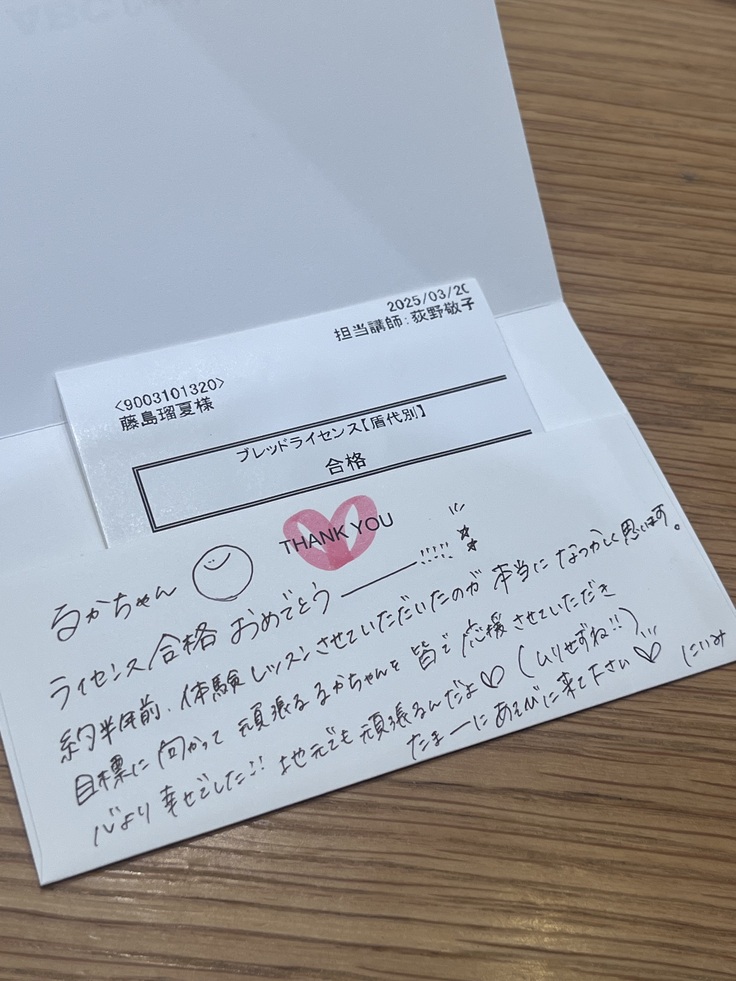 2025/03/2
担当講師:荻野敬子
<9003101320>
藤島瑠夏様
ブレッドライセンス【盾代別】
合格
THANK YOU
るかちゃん
ライセンス合格おめでとう
約半年前、体験レッスンさせていただいたのが本当になつかしく思います。
目標に向かって頑張るるかちゃんを皆で応援させていただき
心より幸せでした!! 地元でも頑張るんだよ♡(ムリせずね!!)
たまーにあそびに来て下さい♡ にいみ